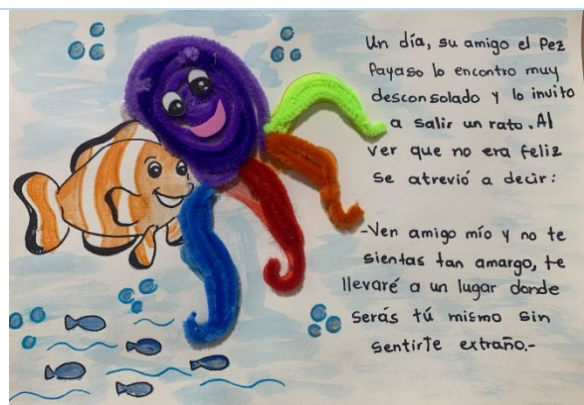 Un día, su amigo el Pez
Payaso lo encontro muy
desconsolado y lo invito
a salir un rato. Al
ver que no era feliz
se atrevió a decir:
-Ven amigo mío y no te
sientas tan amargo, te
llevaré a un lugar donde
serás tú mismo sin
sentirte extraño.-